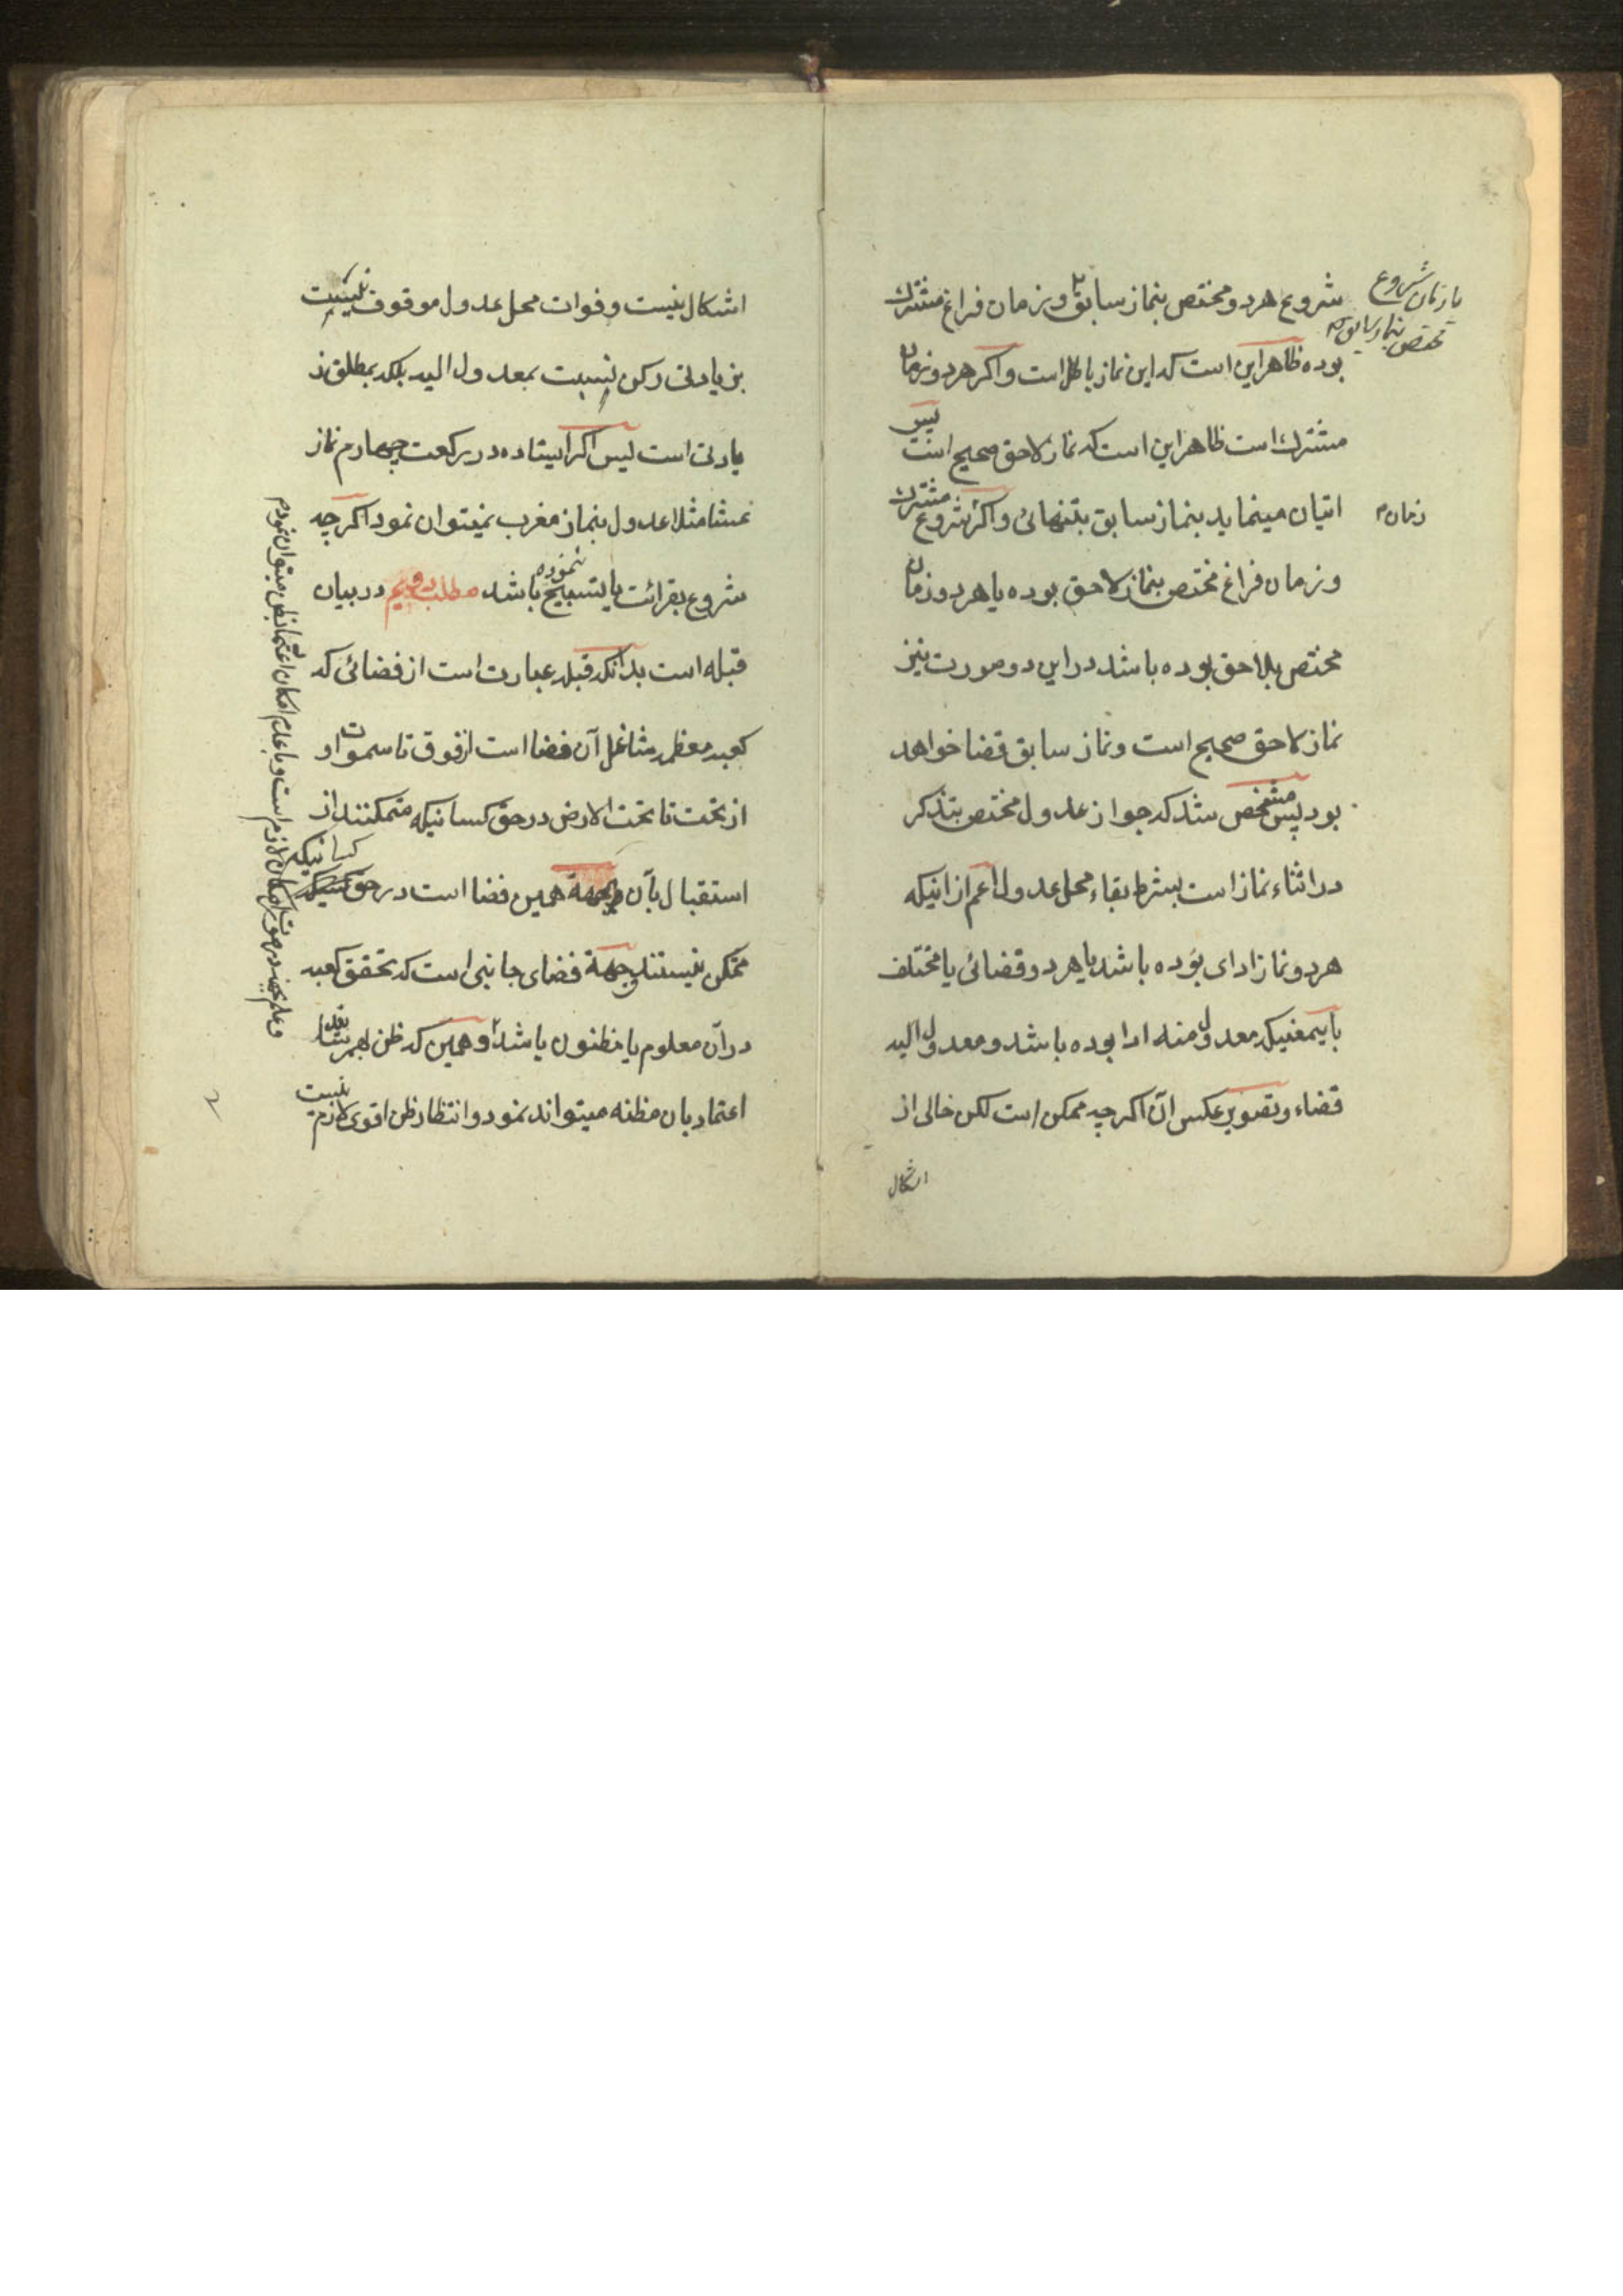 شروع هردو مختص بنماز سابق و زمان فراغ مشترك
یا زمان شروع
مختص بنماز سابق
بوده ظاهر این است که این نماز باطل است و اکر هردو زمان
مشترك است ظاهر این است که نماز لاحق صحیح است پس
اتیان مینماید بنماز سابق بتنهائی و اکر شروع مشترك
زمان
و زمان فراغ مختص بنماز لاحق بوده یا هر دو زمان
مختص بلاحق بوده باشد در این دو صورت نیز
نماز لاحق صحیح است و نماز سابق قضا خواهد
بود پس مشخص شد که جواز عدول مختص بتذکر
در اثناء نماز است بشرط بقاء محل عدول اعم از اینکه
هر دو نماز ادای بوده باشد یا هر دو قضائی یا مختلف
باینمعنیکه معدول منه ادا بوده باشد و معدول الیه
قضاء و تصویر عکس آن اکرچه ممکن است لکن خالی از
اشکال
اشکال نیست و فوات محل عدول موقوف نیست
بزیادتی رکن نسبت بمعدول الیه بلکه بمطلق ز
یادتی است پس اکر ایستاده در رکعت چهارم نماز
عشا مثلا عدول بنماز مغرب نمیتوان نمود اکرچه
شروع بقرائت یا تسبیح نموده باشد مطلب دویم در بیان
قبله است بدانکه قبله عبارت است از فضائی که
کعبه معظمه شاغل آن فضا است از فوق تا سموات و
از تحت تا تحت الارض در حق کسانیکه متمکنند از
استقبال بآن و جهة همین فضا است در حق کسانیکه
متمکن نیستند و جهة فضای جانبی است که تحقق کعبه
در آن معلوم یا مظنون باشد و همین که ظن بهمرساند
اعتماد بان مظنه میتواند نمود و انتظار ظن اقوی لازم نیست
و علم در صورت امکان لازم است و با عدم امکان اعتماد بظن میتوان نمود